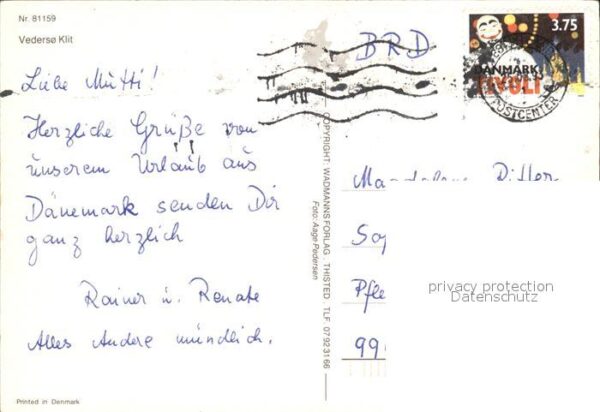 Nr. 81159
Vedersø Klit
BRD
3.75
DANMARK
TIVOLI
POSTCENTER
Liebe Mutti!
Herzliche Grüße von
unserem Urlaub aus
Dänemark senden Dir
ganz herzlich
Rainer u. Renate
Alles Andere mündlich.
COPYRIGHT: WADMANNS FORLAG . THISTED TLF. 07 92 31 66
Foto: Aage Pedersen
Pfle
99
privacy protection
Datenschutz
Printed in Denmark